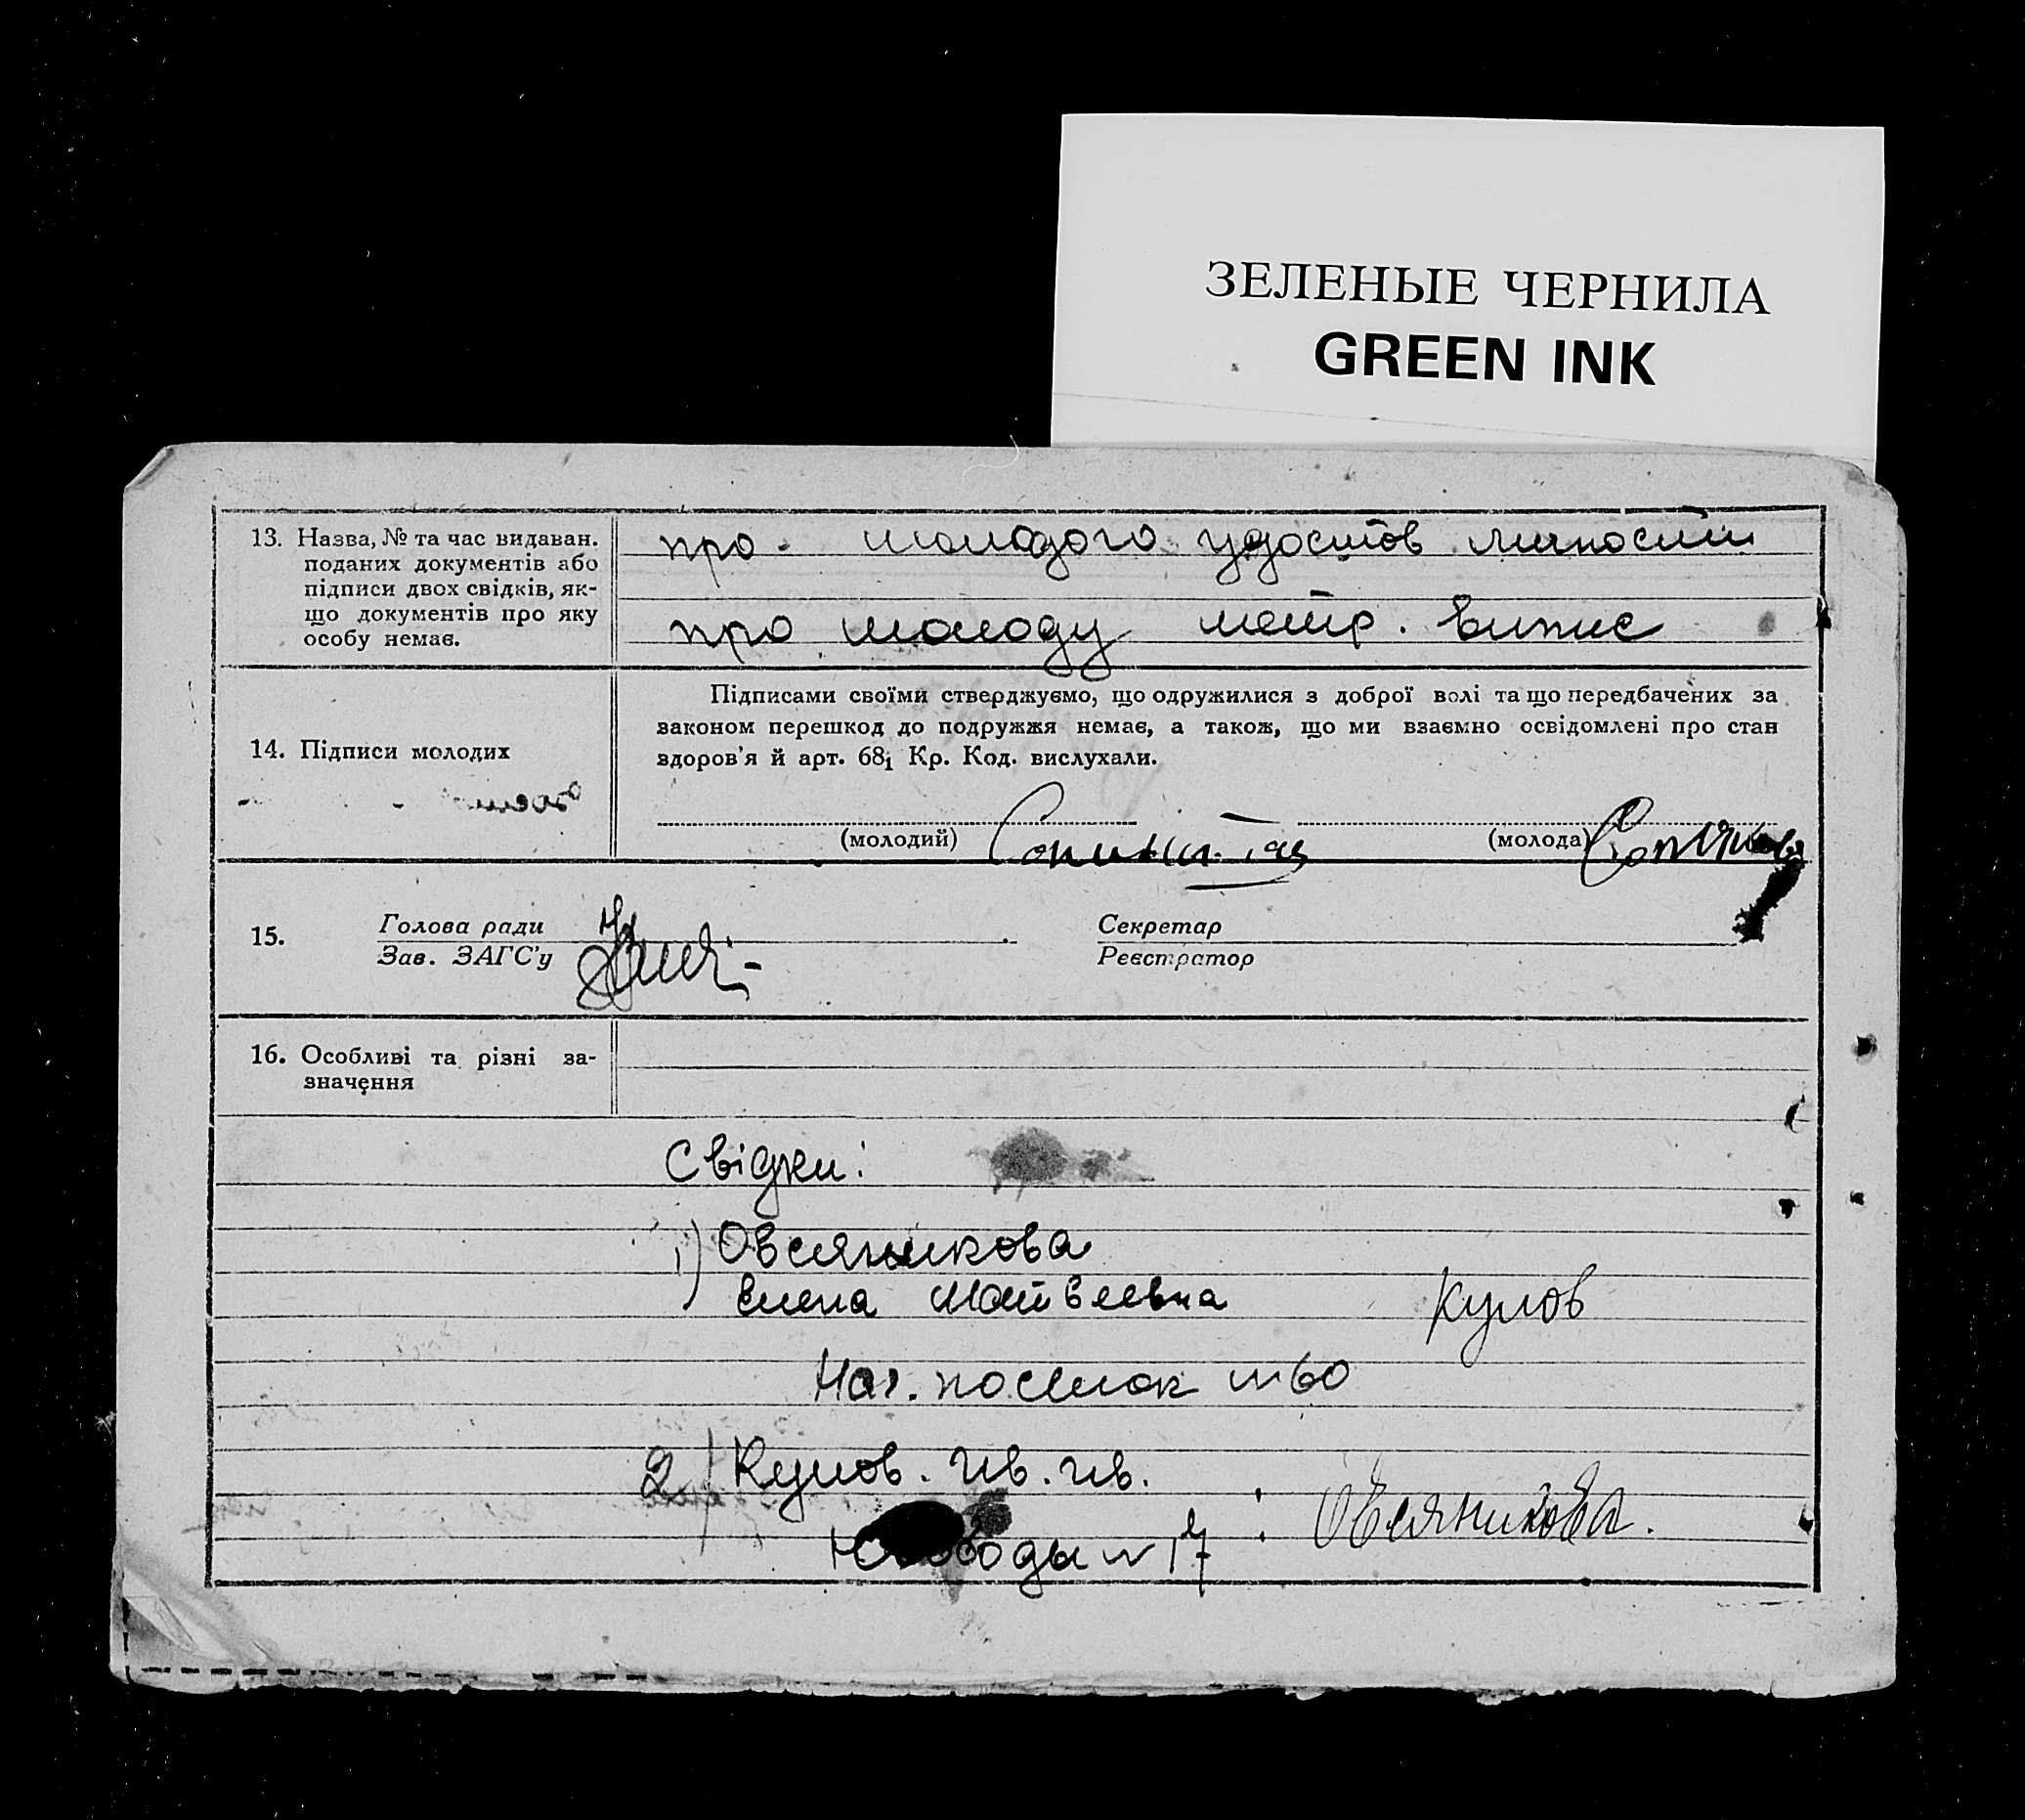 ЗЕЛЕНЫЕ ЧЕРНИЛА
GREEN INK
13. Назва, № та час видаван.
поданих документів або
підписи двох свідків, як-
що документів про яку
особу немає.
про молодого удостов личности
про молоду метр. Випис
14. Підписи молодих
Підписами своїми стверджуємо, що одружилися з доброї волі та що передбачених за
законом перешкод до подружжя немає, а також, що ми взаємно освідомлені про стан
здоров'я й арт. 68₁ Кр. Код. вислухали.
(молодий)
(молода)
15. Голова ради
Зав. ЗАГС'у
Секретар
Реєстратор
16. Особливі та різні за-
значення
Свідки:
1) Овсяникова
Елена Матвеевна
Кулов
Наг. поселок № 60
2) Кулов. Ив. Ив.
Овсяникова.
№ 17